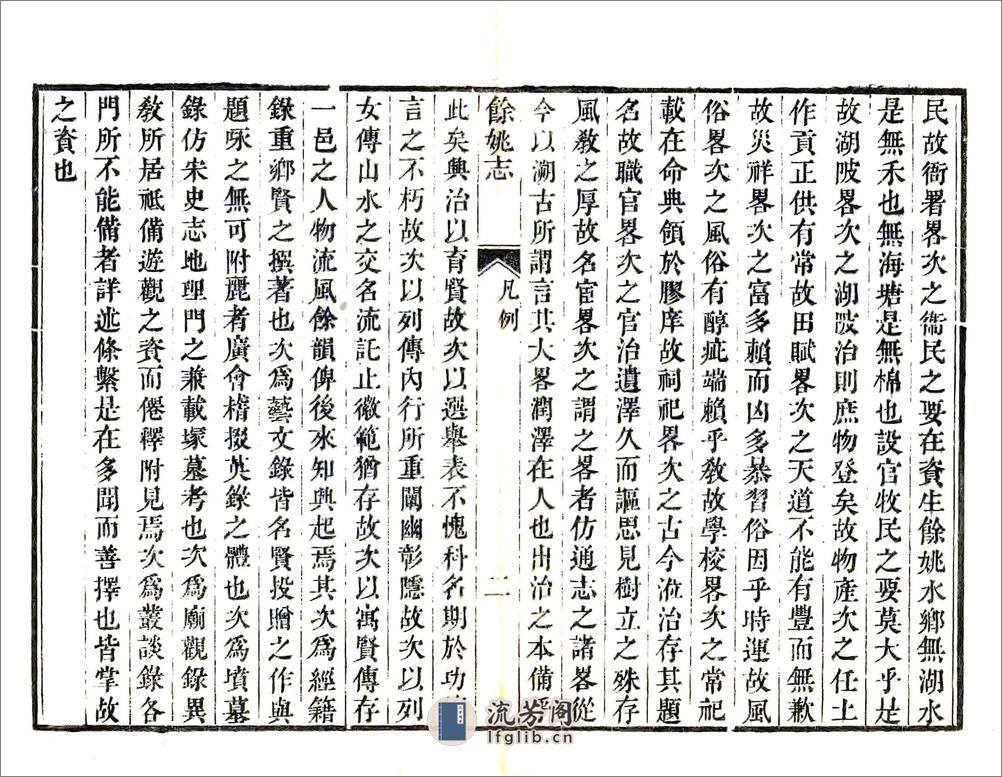 民故衙署畧次之衞民之要在資生餘姚水鄉無湖水
是無禾也無海塘是無棉也設官牧民之要莫大乎是
故湖陂畧次之湖陂治則庶物登矣故物產次之任土
作貢正供有常故田賦畧次之天道不能有豐而無歉
故災祥畧次之富多賴而凶多暴習俗因乎時運故風
俗畧次之風俗有醇疵端賴乎敎故學校畧次之常祀
載在命典領於膠庠故祠祀畧次之古今涖治存其題
名故職官畧次之官治遺澤久而謳思見樹立之殊存
風敎之厚故名宦畧次之謂之畧者仿通志之諸畧從
今以溯古所謂言其大畧潤澤在人也出治之本備
餘姚志
凡例
二
此矣興治以育賢故次以選舉表不愧科名期於功
言之不朽故次以列傳內行所重闡幽彰隱故次以列
女傳山水之交名流託止徽範猶存故次以寓賢傳存
一邑之人物流風餘韻俾後來知興起焉其次爲經籍
錄重鄉賢之撰著也次爲藝文錄皆名賢投贈之作與
題咏之無可附麗者廣會稽掇英錄之體也次爲墳墓
錄仿宋史志地理門之兼載塚墓考也次爲廟觀錄異
敎所居祗備遊觀之資而僊釋附見焉次爲叢談錄各
門所不能備者詳述條繫是在多聞而善擇也皆掌故
之資也
流芳阁
lfglib.cn